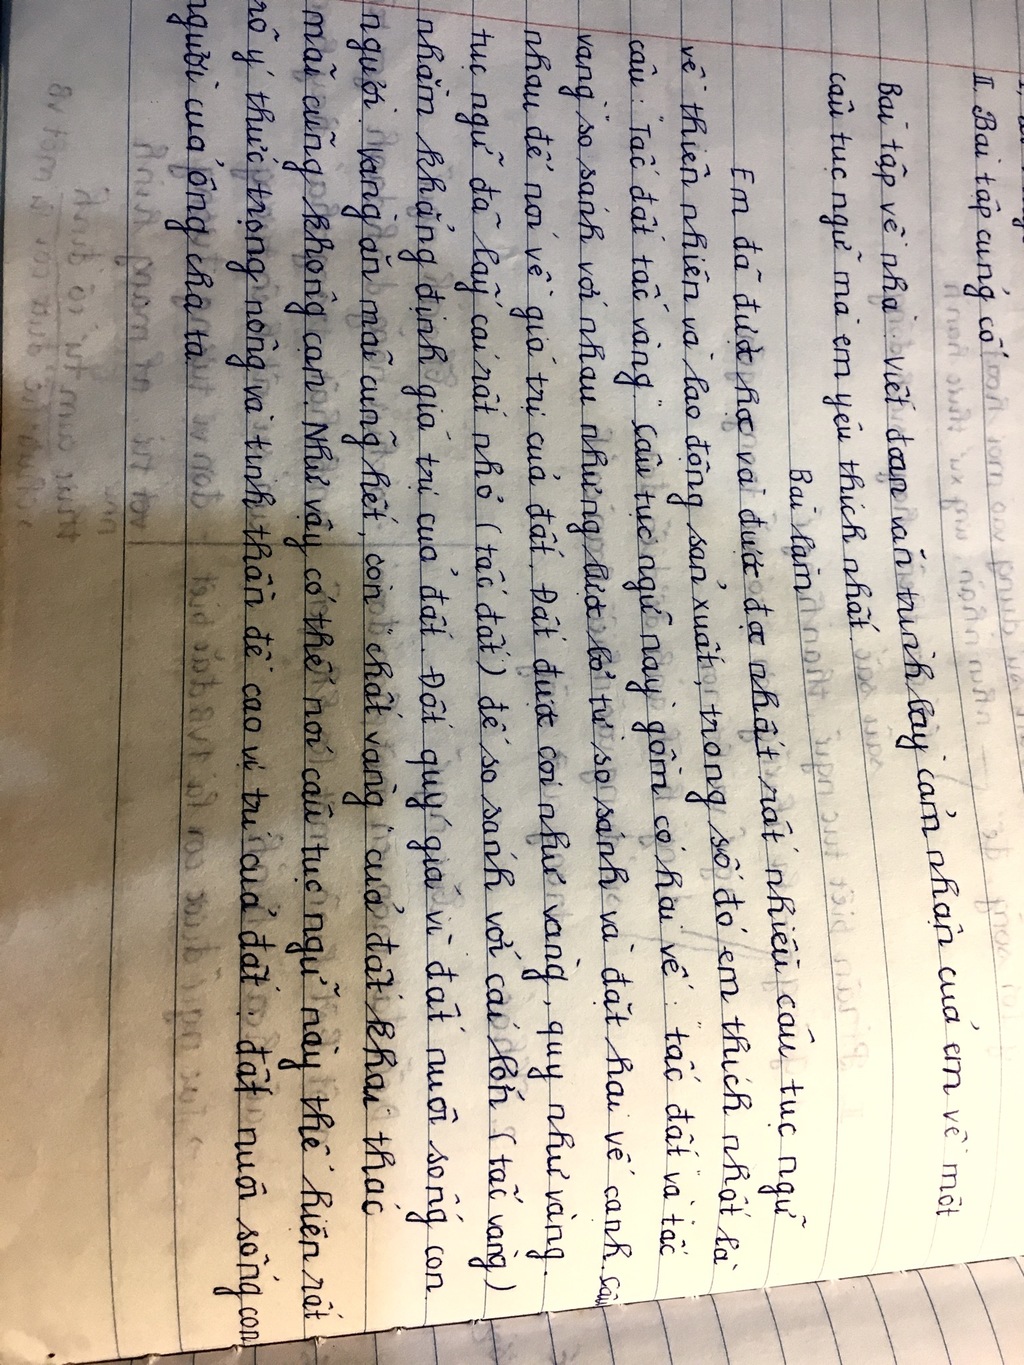 II. Bài tập củng cố
Bài tập về nhà: viết đoạn văn trình bày cảm nhận của em về một
câu tục ngữ mà em yêu thích nhất.
Bài làm
Em đã được học và được đọc nhất rất nhiều câu tục ngữ
về thiên nhiên và lao động sản xuất, trong số đó em thích nhất là
câu: "Tấc đất tấc vàng". Câu tục ngữ này gồm có hai vế: "tấc đất" và tấc
vàng" so sánh với nhau nhưng lược bỏ từ so sánh và đặt hai vế cạnh
nhau để nói về giá trị của đất. Đất được coi như vàng, quý như vàng. Câu
tục ngữ đã lấy cái rất nhỏ (tấc đất) để so sánh với cái lớn (tấc vàng)
nhằm khẳng định giá trị của đất. Đất quý giá vì đất nuôi sống con
người. Vàng ăn mãi cũng hết, còn "chất vàng" của đất khai thác
mãi cũng không cạn. Như vậy có thể nói câu tục ngữ này thể hiện rất
rõ ý thức trọng nông và tinh thần đề cao vị trí của đất, đất nuôi sống con
người của ông cha ta.